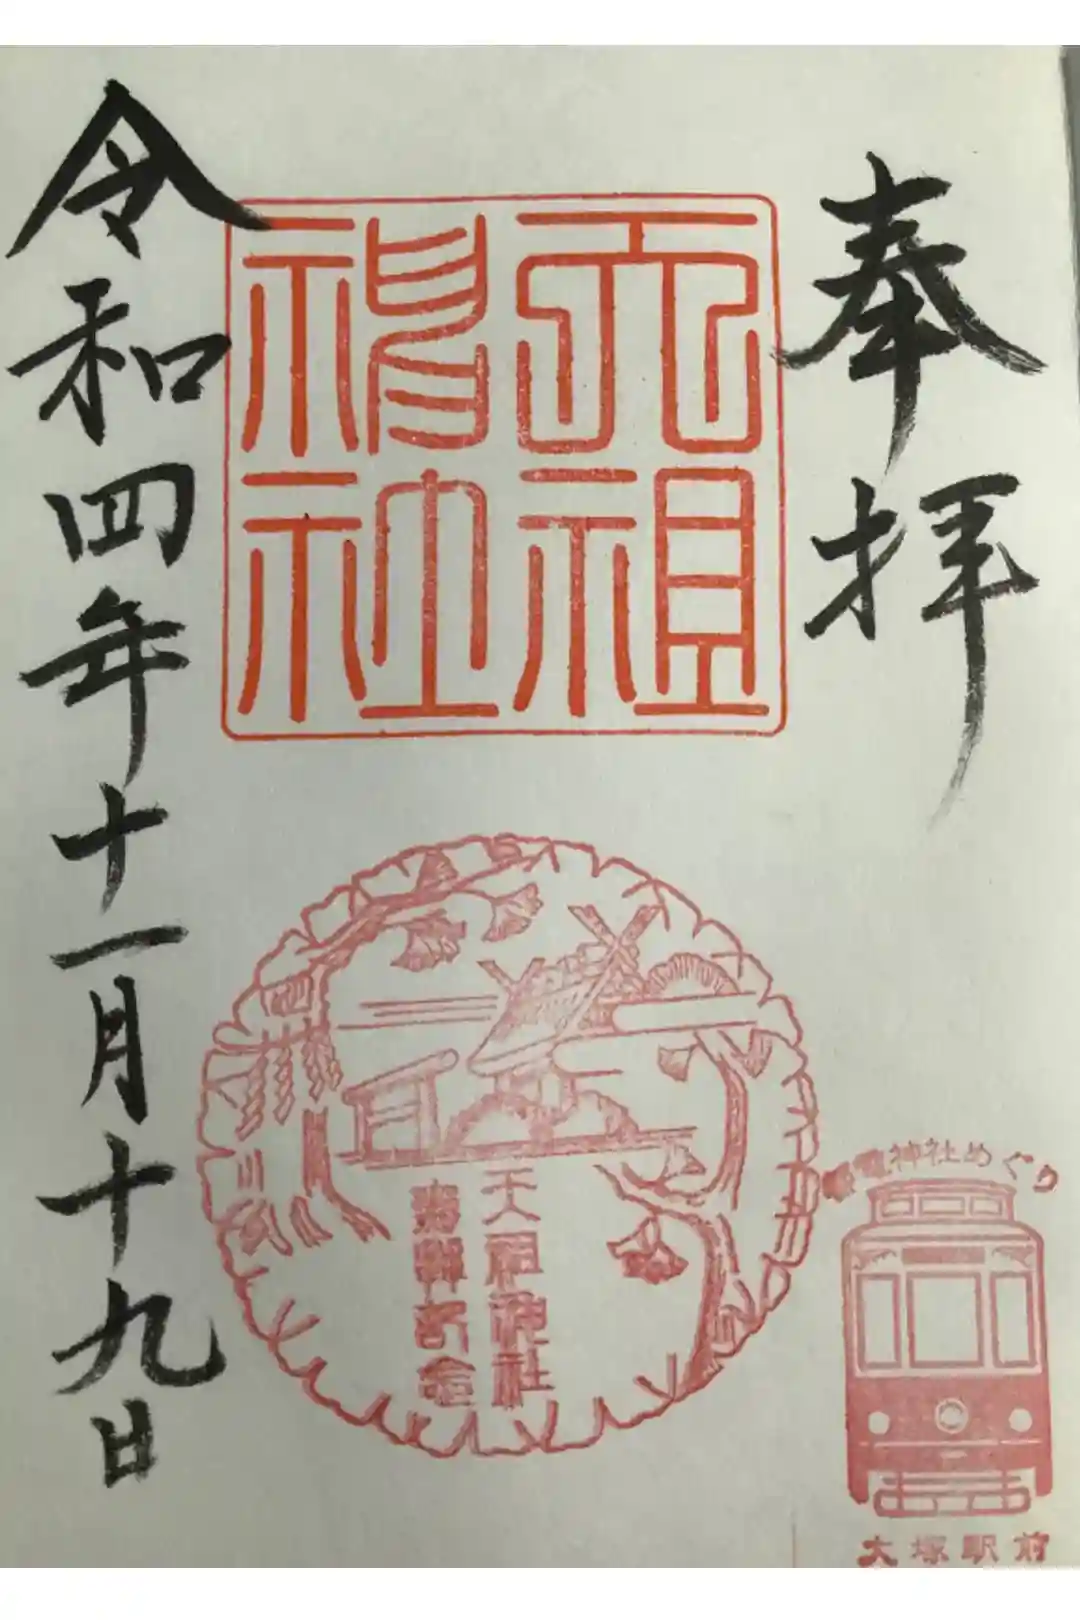 奉拝
天祖
神社
天祖神社
参拝記念
令和四年十一月十九日
電神社めぐり
大塚駅前